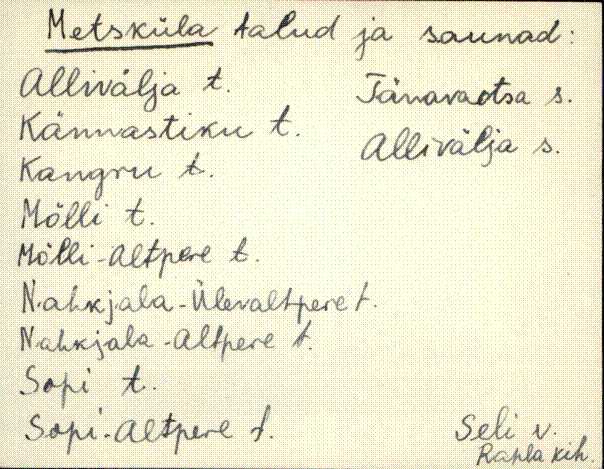 Metsküla talud ja saunad:
Allivälja t.
Kännastiku t.
Kangru t.
Mölli t.
Mölli-Altpere t.
Nahkjala-Ülevaltpere t.
Nahkjala-Altpere t.
Sopi t.
Sopi-Altpere t.
Tänavaotsa s.
Allivälja s.
Seli v.
Rapla kih.